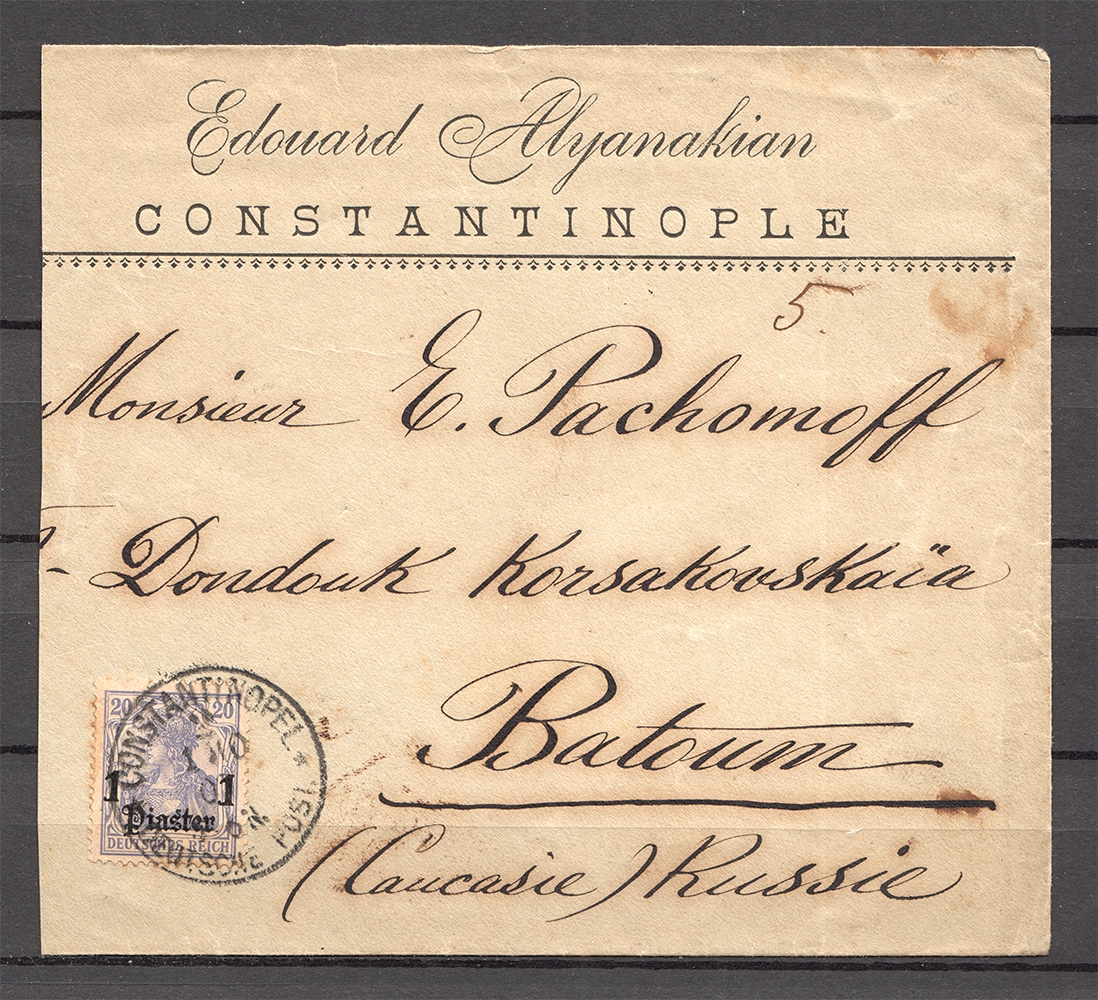 Edouard Alyanakian
CONSTANTINOPLE
5.
Monsieur E. Pachomoff
Dondouk Korsakovskaïa
Batoum
(Caucasie) Russie
20 20
1 1
Piaster
DEUTSCHES REICH
CONSTANTINOPEL *
DEUTSCHE POST